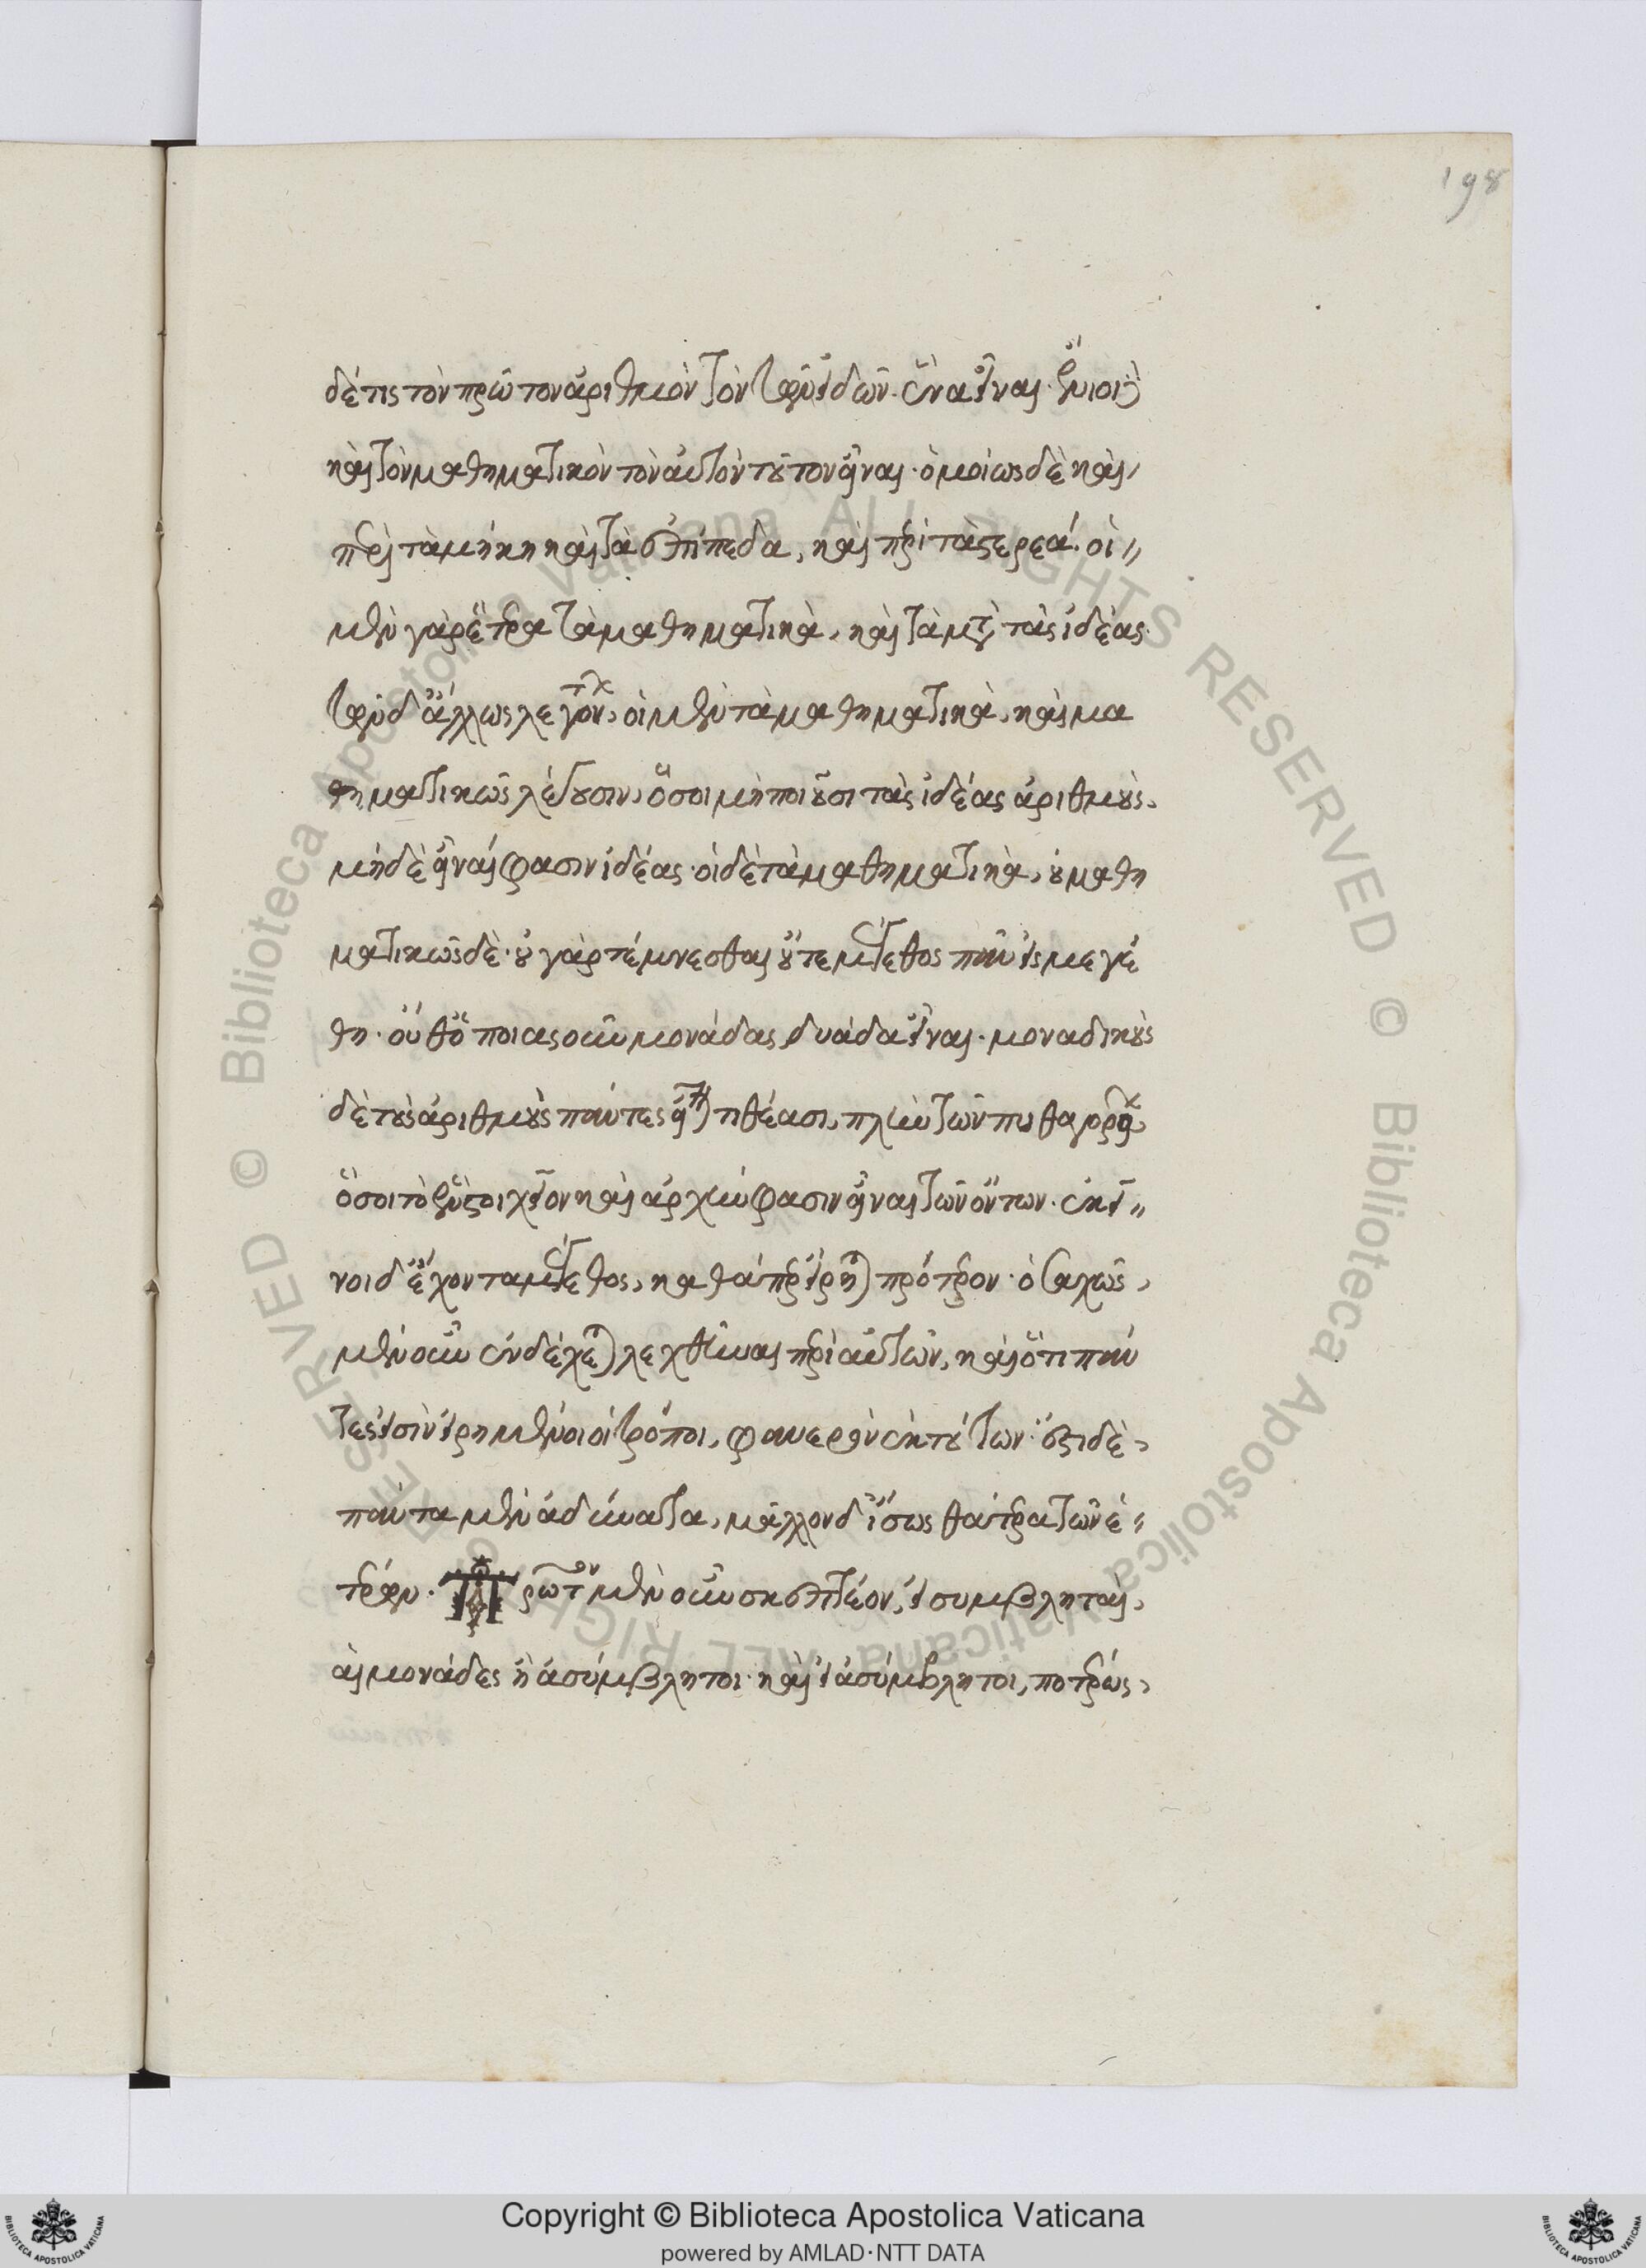 198
δέ τις τὸν πρῶτον ἀριθμὸν τὸν τῶν εἰδῶν ἕνα εἶναι· ἔνιοι δὲ
καὶ τὸν μαθηματικὸν τὸν αὐτὸν τοῦτον εἶναι· ὁμοίως δὲ καὶ
περὶ τὰ μήκη καὶ τὰ ἐπίπεδα, καὶ περὶ τὰ στερεά· οἱ
μὲν γὰρ ἕτερα τὰ μαθηματικὰ, καὶ τὰ μετὰ τὰς ἰδέας·
τῶν δ' ἄλλως λεγόντων, οἱ μὲν τὰ μαθηματικὰ, καὶ μα
θηματικῶς λέγουσιν, ὅσοι μὴ ποιοῦσι τὰς ἰδέας ἀριθμοὺς,
μηδὲ εἶναι φασιν ἰδέας· οἱ δὲ τὰ μαθηματικὰ, οὐ μαθη
ματικῶς δὲ· οὐ γὰρ τέμνεσθαι οὔτε μέγεθος πᾶν εἰς μεγέ
θη· οὔθ' ὁποιασοῦν μονάδας δυάδα εἶναι· μοναδικοὺς
δὲ τοὺς ἀριθμοὺς πάντες εἶναι τιθέασι, πλὴν τῶν πυθαγορείων
ὅσοι τὸ ἓν στοιχεῖον καὶ ἀρχήν φασιν εἶναι τῶν ὄντων· ἐκεῖ
νοι δ' ἔχοντα μέγεθος, καθάπερ εἴρηται πρότερον· ὁσαχῶς
μὲν οὖν ἐνδέχεται λεχθῆναι περὶ αὐτῶν, καὶ ὅτι πάν
τες εἰσὶν εἰρημένοι οἱ τρόποι, φανερὸν ἐκ τούτων· ἔστι δὲ
πάντα μὲν ἀδύνατα, μᾶλλον δ' ἴσως θάτερα τῶν ἑ
τέρων· Πρῶτον μὲν οὖν σκεπτέον, εἰ συμβληταὶ
αἱ μονάδες ἢ ἀσύμβλητοι· καὶ εἰ ἀσύμβλητοι, ποτέρως
Copyright © Biblioteca Apostolica Vaticana
powered by AMLAD·NTT DATA
© Biblioteca Apostolica Vaticana ALL RIGHTS RESERVED © Biblioteca Apostolica Vaticana ALL RIGHTS RESERVED